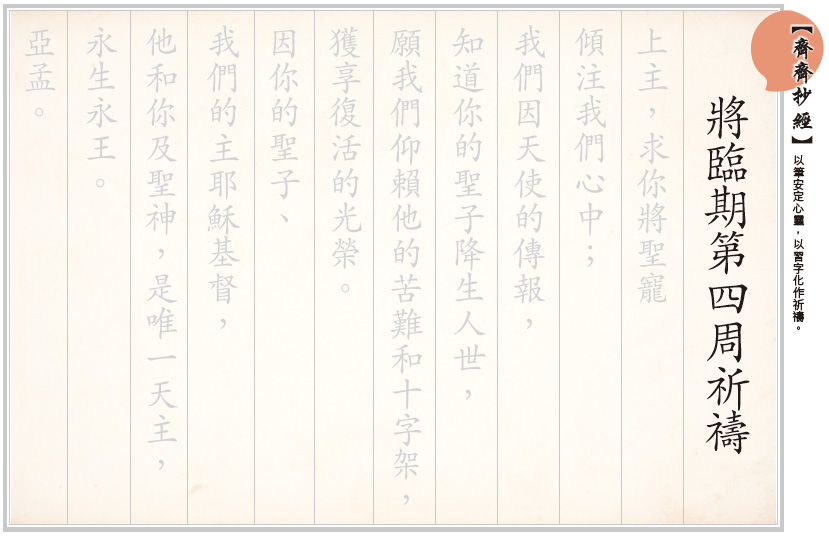 【齊齊抄經】
以筆安定心靈，以習字化作祈禱。
將臨期第四周祈禱
上主，求你將聖寵
傾注我們心中；
我們因天使的傳報，
知道你的聖子降生人世，
願我們仰賴他的苦難和十字架，
獲享復活的光榮。
因你的聖子、
我們的主耶穌基督，
他和你及聖神，是唯一天主，
永生永王。
亞孟。